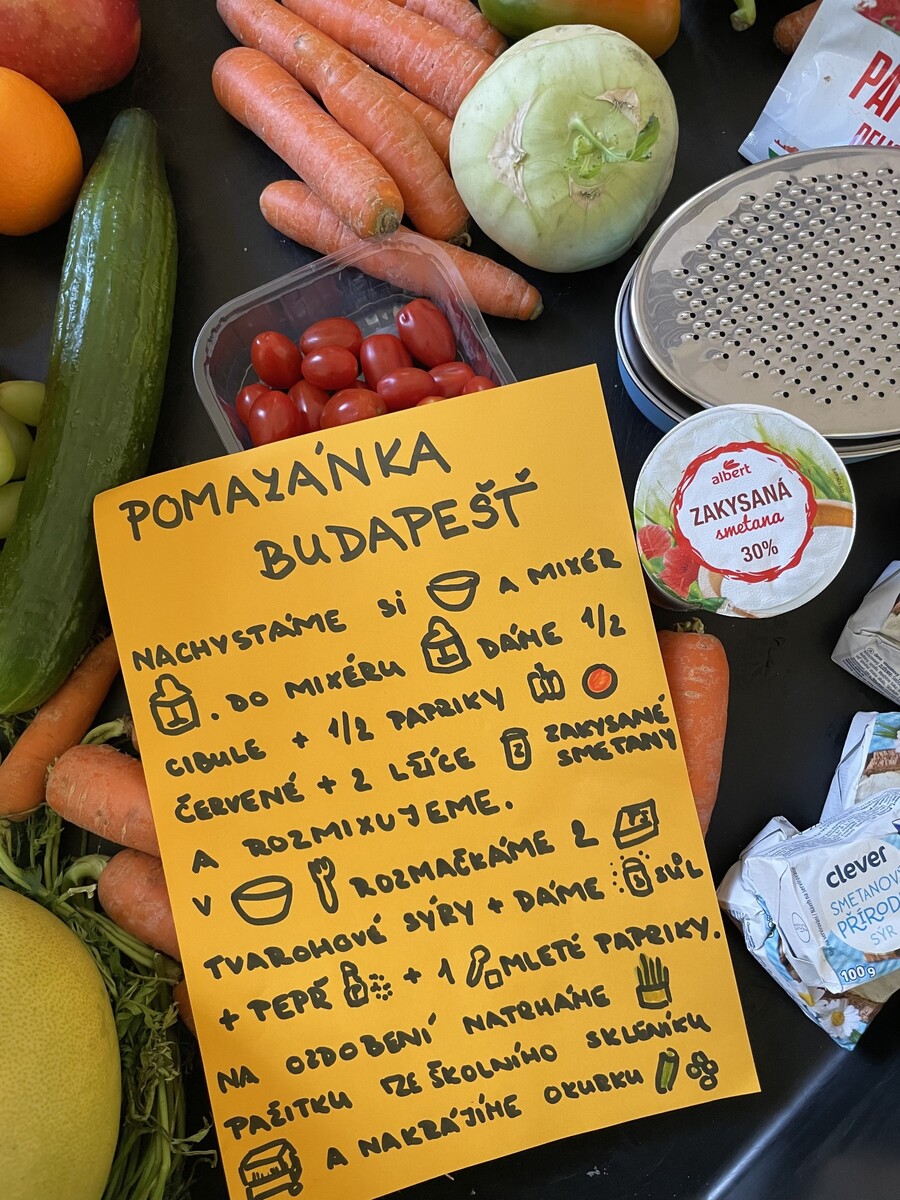 PAP
albert
ZAKYSANÁ
smetana
30%
POMAZÁNKA
BUDAPEŠŤ
NACHYSTÁME SI A MIXÉR
. DO MIXÉRU DÁME 1/2
CIBULE + 1/2 PAPRIKY
ČERVENÉ + 2 LŽÍCE ZAKYSANÉ
SMETANY
A ROZMIXUJEME.
V ROZMAČKÁME 2
TVAROHOVÉ SÝRY + DÁME SŮL
+ PEPŘ + 1 MLETÉ PAPRIKY.
NA OZDOBENÍ NATRHÁME
PAŽITKU ZE ŠKOLNÍHO SKLENÍKU
A NAKRÁJÍME OKURKU
clever
SMETANOV
PŘÍROD
SÝR
100 g